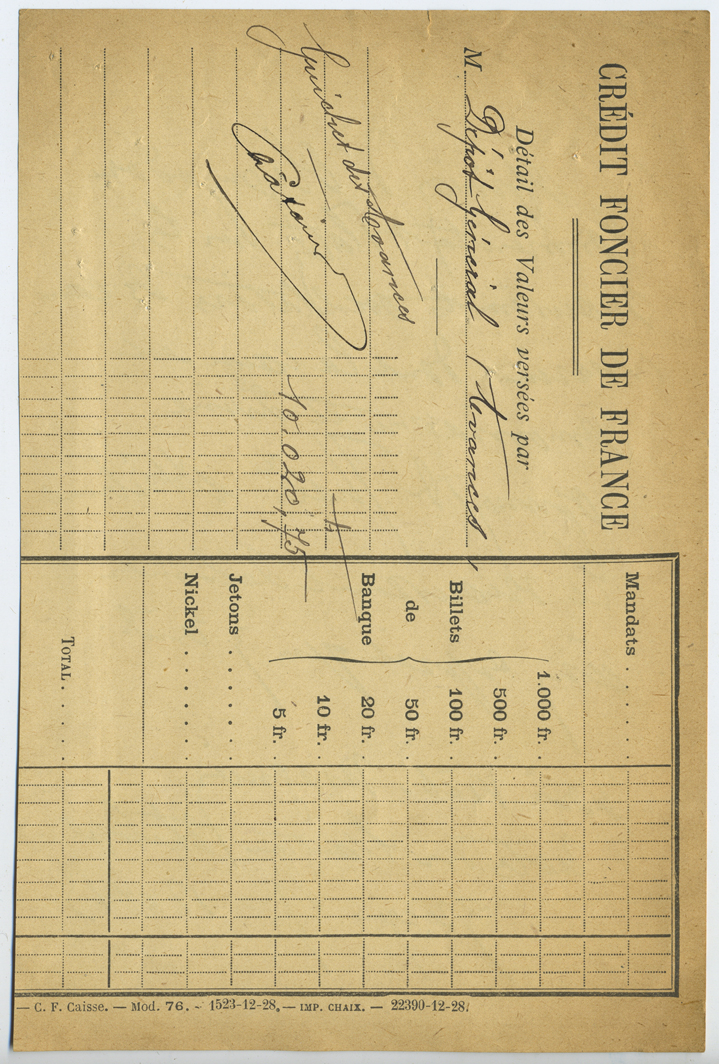 CRÉDIT FONCIER DE FRANCE
Détail des Valeurs versées par
M. Dépôt Général (Avances)
Guichet des Avances
10.020,75
Mandats . . . . .
Billets
de
Banque
1.000 fr.
500 fr.
100 fr.
50 fr.
20 fr.
10 fr.
5 fr.
Jetons . . . . .
Nickel . . . . .
TOTAL . . . .
— C. F. Caisse. — Mod. 76. - 1523-12-28. — IMP. CHAIX. — 22390-12-28.